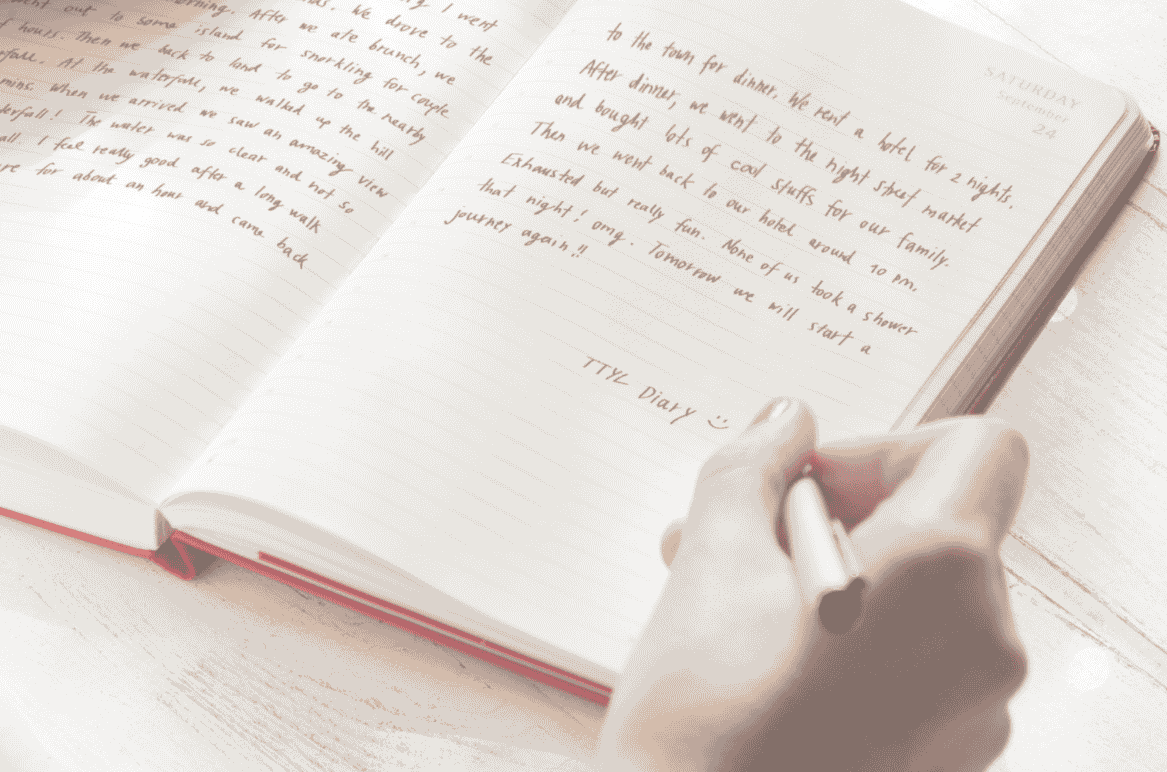 I went
We drove to the
morning. After we ate brunch, we
out to some island for snorkling for couple
hours. Then we back to land to go to the nearby
At the waterfall, we walked up the hill
mins. When we arrived we saw an amazing view
The water was so clear and not so
I feel really good after a long walk
for about an hour and came back
SATURDAY
September
24
to the town for dinner. We rent a hotel for 2 nights.
After dinner, we went to the night street market
and bought lots of cool stuffs for our family.
Then we went back to our hotel around 10 pm.
Exhausted but really fun. None of us took a shower
that night! omg. Tomorrow we will start a
journey again!!
TTYL Diary